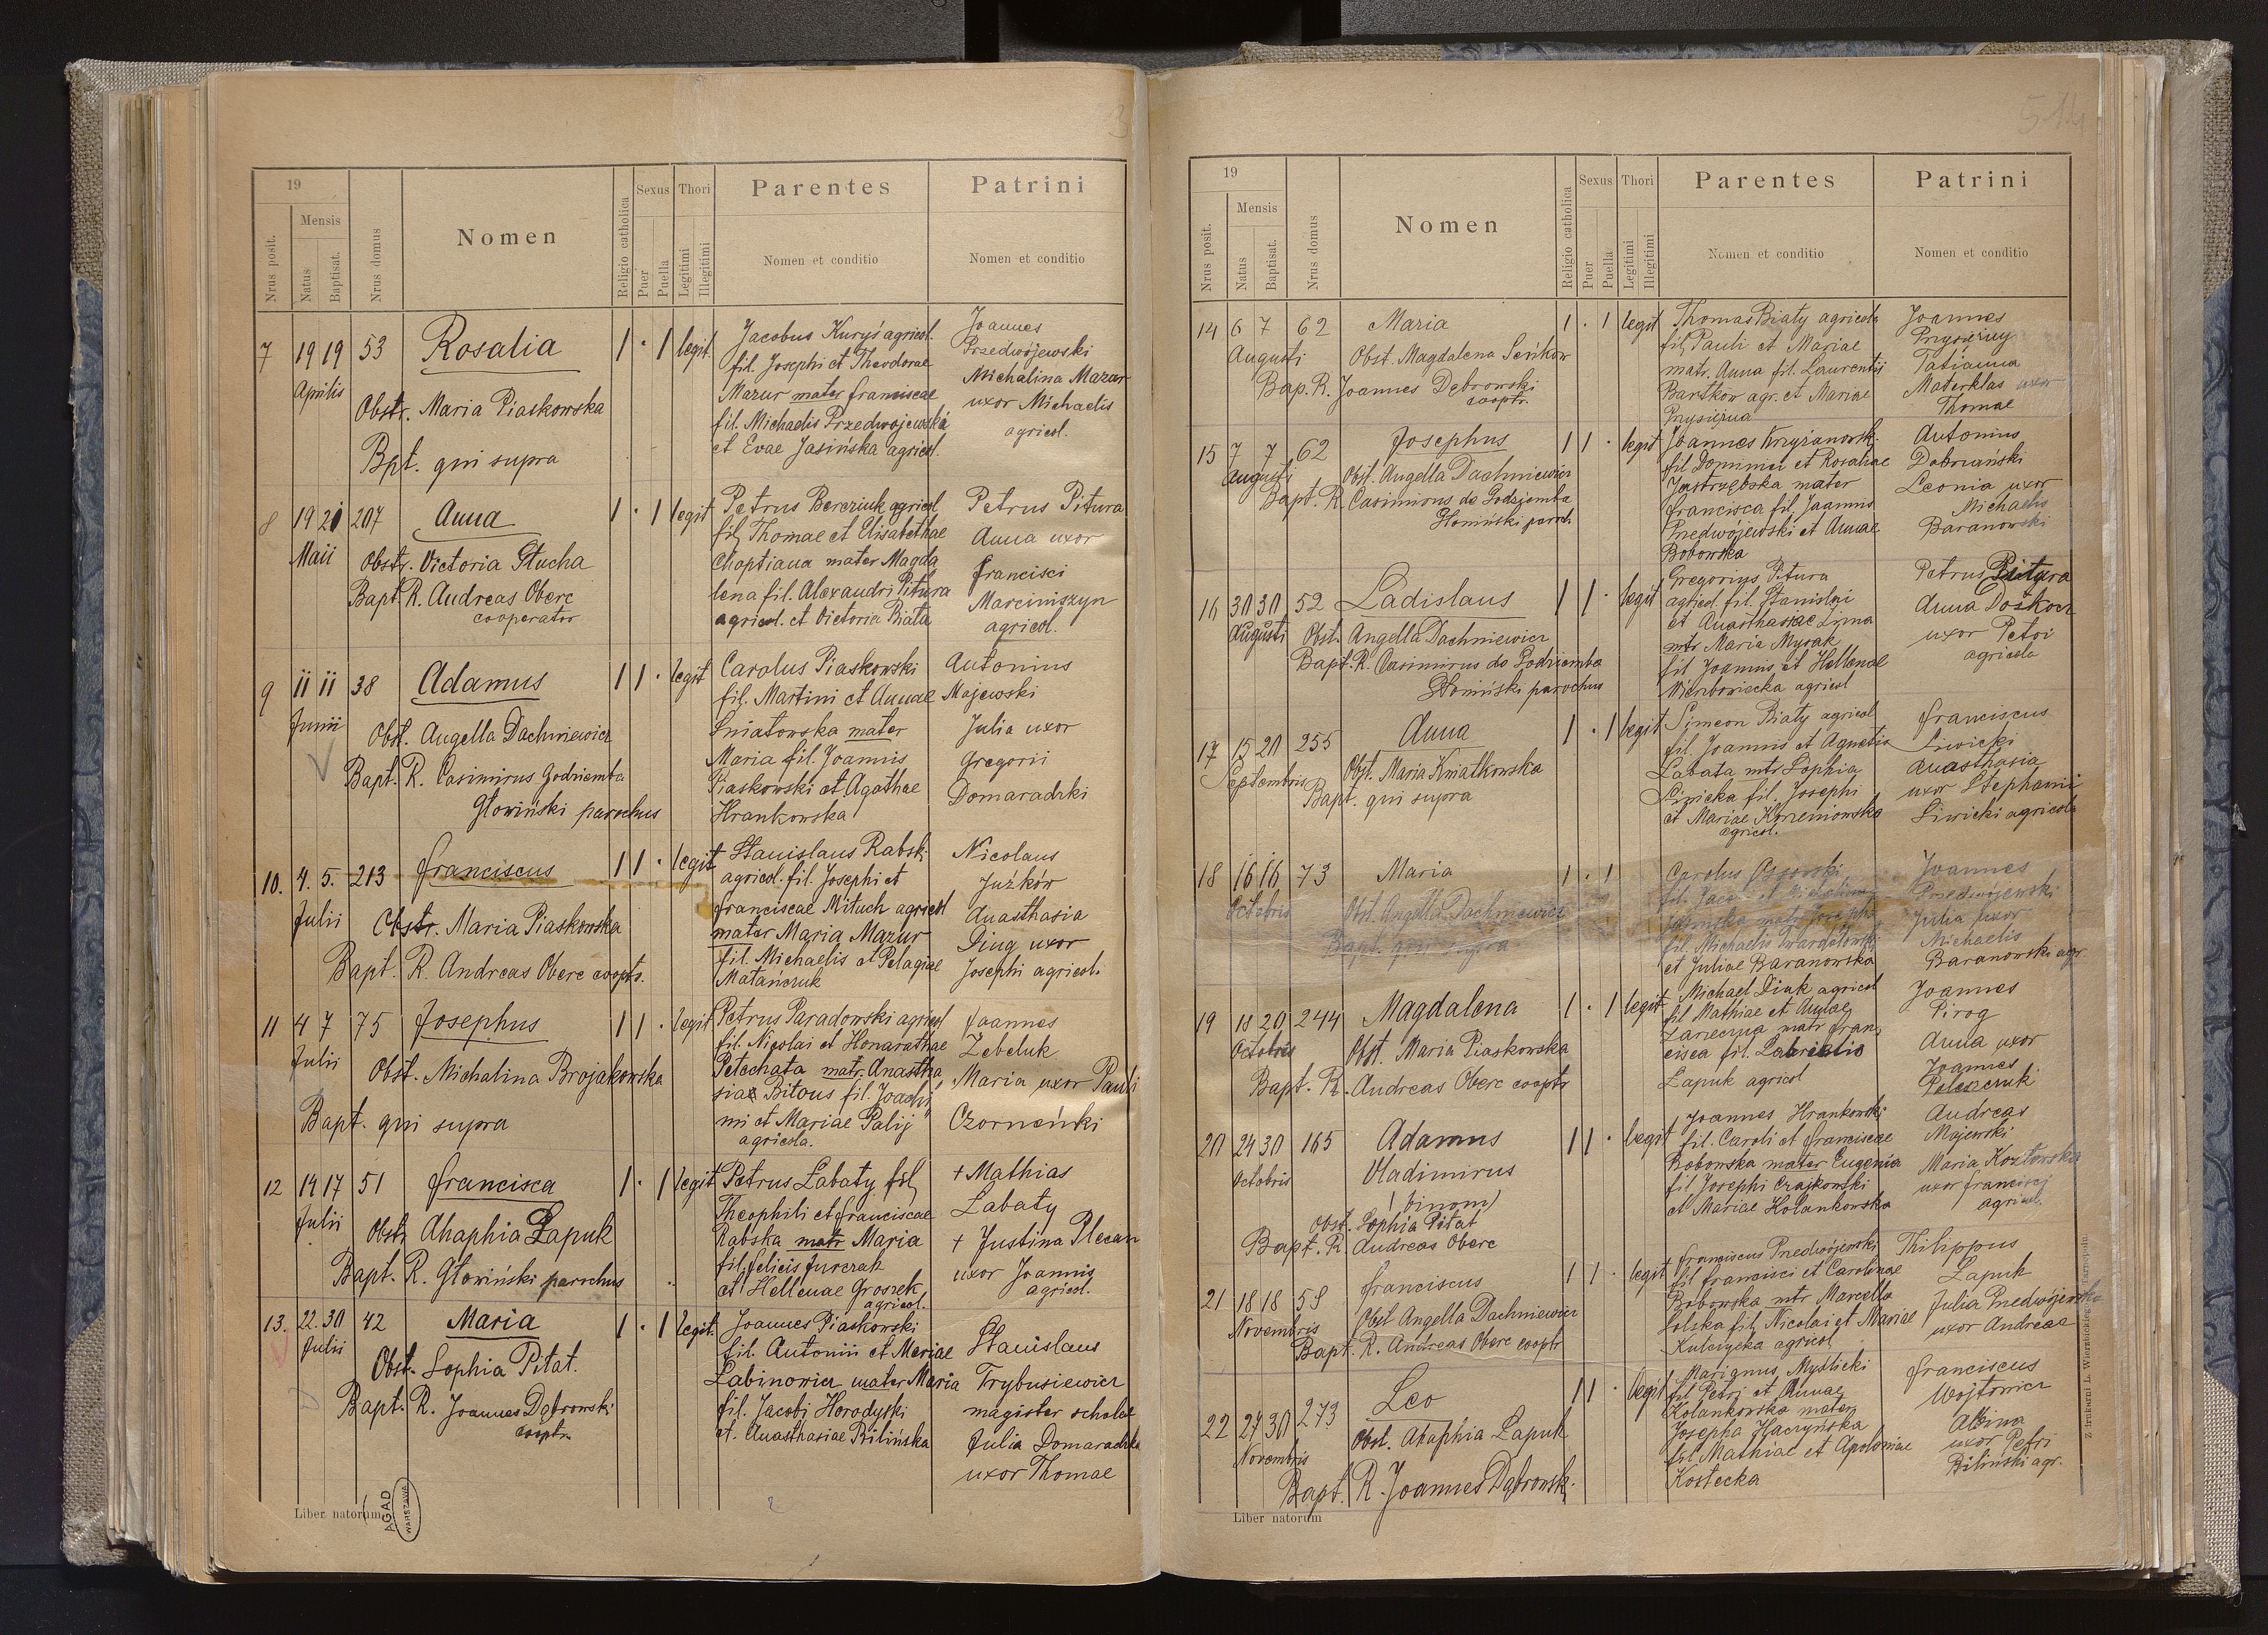 3
19
Mensis
Nrus posit.
Natus
Baptisat.
Nrus domus
Nomen
Religio catholica
Sexus
Puer
Puella
Thori
Legitimi
Illegitimi
Parentes
Nomen et conditio
Patrini
Nomen et conditio
7 19 19 53 Rosalia 1 · 1 legit.
Aprilis
Obstr. Maria Piaskowska
Bpt. qui supra
Jacobus Kuryś agricol.
fil. Josephi et Theodorae
Mazur mater franciscae
fil. Michaelis Przedwojewska
et Evae Jasińska agricol.
Joannes
Przedwójewski
Michalina Mazur
uxor Michaelis
agricol.
8 19 21 207 Anna 1 · 1 legit
Maii
Obstr. Victoria Głucha
Bapt. R. Andreas Oberc
cooperator
Petrus Bereziuk agricol
fil. Thomae et Elisabethae
Choptiana mater Magda
lena fil. Alexandri Pitura
agricol. et Victoria Biała
Petrus Pitura
Anna uxor
francisci
Marciniszyn
agricol.
9 11 11 38 Adamus 1 1 · legit
Junii
Obst. Angella Dachniewicz
Bapt. R. Casimirus Godziemba
Głowiński parochus
Carolus Piaskowski
fil. Martini et Annae
Śniatowska mater
Maria fil. Joannis
Piaskowski et Agathae
Hrankowska
Antonius
Majewski
Julia uxor
Gregorii
Domaradzki
10. 4. 5. 213 franciscus 1 1 · legit
Julii
Obstr. Maria Piaskowska
Bapt. R. Andreas Oberc coopts.
Stanislaus Rabski
agricol. fil. Josephi et
franciscae Mituch agricol
mater Maria Mazur
fil. Michaelis et Pelagiae
Matańczuk
Nicolaus
Juźków
Anasthasia
Ding uxor
Josephi agricol.
11 4 7 75 Josephus 1 1 · legit
Julii
Obst. Michalina Brojakowska
Bapt. qui supra
Petrus Paradowski agricol
fil. Nicolai et Honarathae
Petechata matr. Anastha
siae Bitous fil. Joachi
mi et Mariae Palij
agricola.
Joannes
Zebeluk
Maria uxor Pauli
Czorneńki
12 14 17 51 francisca 1 · 1 legit
Julii
Obstr. Ahaphia Łapuk
Bapt. R. Głowiński parochus
Petrus Łabaty fil
Theophili et franciscae
Rabska matr Maria
fil. felicis Jurczak
et Hellenae Groszek
agricol.
+ Mathias
Łabaty
+ Justina Plecan
uxor Joannis
agricol.
13. 22. 30 42 Maria 1 · 1 legit.
Julii
Obst. Sophia Pitat.
Bapt. R. Joannes Dąbrowski
cooptr.
Joannes Piaskowski
fil. Antonii et Mariae
Labinowicz mater Maria
fil. Jacobi Horodyski
et. Anasthasiae Bilińska
Stanislaus
Trybusiewicz
magister scholae
Julia Domaradzka
uxor Thomae
2
Liber natorum
AGAD
WARSZAWA
514
19
Mensis
Nrus posit.
Natus
Baptisat.
Nrus domus
Nomen
Religio catholica
Sexus
Puer
Puella
Thori
Legitimi
Illegitimi
Parentes
Nomen et conditio
Patrini
Nomen et conditio
14 6 7 62 Maria 1 · 1 legit
Augusti
Obst. Magdalena Seńków
Bap. R. Joannes Dąbrowski
cooptr.
Thomas Biały agricola
fil. Pauli et Mariae
matr. Anna fil. Laurentii
Bartków agr. et Mariae
Prysiężna
Joannes
Prysiężny
Tatianna
Materklas uxor
Thomae
15 7 7 62 Josephus 1 1 · legit
Augusti
Obst. Angella Dachniewicz
Bapt. R. Casimirus de Godziemba
Głowiński paroch
Joannes Krzyżanowski
fil Dominici et Rosaliae
Jastrzębska mater
francisca fil, Joannis
Przedwójewski et Annae
Bobowska
Antonius
Dobrwański
Leonia uxor
Michaelis
Baranowski
16 30 30 52 Ladislaus 1 1 · legit
Augusti
Obst. Angella Dachniewicz
Bapt. R. Casimirus de Godziemba
Głowiński parochus
Gregorius Pitura
agricol. fil. Stanislai
et Anasthasiae Zima
mtr Maria Mysak
fil Joannis et Hellenae
Wierboniecka agricol
Petrus Pitura
Anna Doskocz
uxor Petri
agricola
17 15 20 255 Anna 1 · 1 legit
Septembris
Obst. Maria Kwiatkowska
Bapt. qui supra
Simeon Biały agricol
fil. Joannis et Agnetis
Łabata mtr Sophia
Siwicka fil. Josephi
et Mariae Korzeniowska
agricol.
franciscus
Siwicki
Anasthasia
uxor Stephanii
Siwicki agricola
18 16 16 73 Maria 1 · 1
Octobris
Obst. Angella Dachniewicz
Bapt. qui supra
Carolus
fil. Jacobi et
Jasińska matr Josepha
fil. Michaelis
et Juliae Baranowska
Joannes
Przedwójewski
Julia uxor
Michaelis
Baranowski agr.
19 18 20 244 Magdalena 1 · 1 legit
Octobris
Obst. Maria Piaskowska
Bapt. R. Andreas Oberc cooptr
Michael Diuk agricol
fil Mathiae et Annae
Zarieczna matr fran
cisca fil. Gabrielis
Łapuk agricol
Joannes
Pirog
Anna uxor
Joannes
Peleszczuk
20 24 30 165 Adamus 1 1 · legit
Octobris
Vladimirus
(binom)
Obst. Sophia Pitat
Bapt. R. Andreas Oberc
Joannes Hrankowski
fil. Caroli et franciscae
Bobowska mater Eugenia
fil Josephi Czajkowski
et Mariae Holankowska
Andreas
Majewski
Maria Kozłowska
uxor francisci
agricol.
21 18 18 58 franciscus 1 1 · legit
Novembris
Obst Angella Dachniewicz
Bapt. R. Andreas Oberc cooptr
franciscus Przedwójewski
fil francisci et Carolinae
Bobowska mtr Marcella
Solska fil, Nicolai et Mariae
Kulczycka agricol
Thilippus
Łapuk
Julia Przedwójewska
uxor Andreae
22 27 30 273 Leo 1 1 · legit
Novembris
Obst. Ahaphia Łapuk
Bapt. R. Joannes Dąbrowski
Marianus Myślicki
fil Petri et Annae
Kolankowska mater
Josepha Haczyńska
fil Mathiae et Apoloniae
Kostecka
franciscus
Wojtowicz
Albina
uxor Petri
Biliński agr.
Liber natorum
Z drukarni L. Wierzbickiego w Tarnopolu